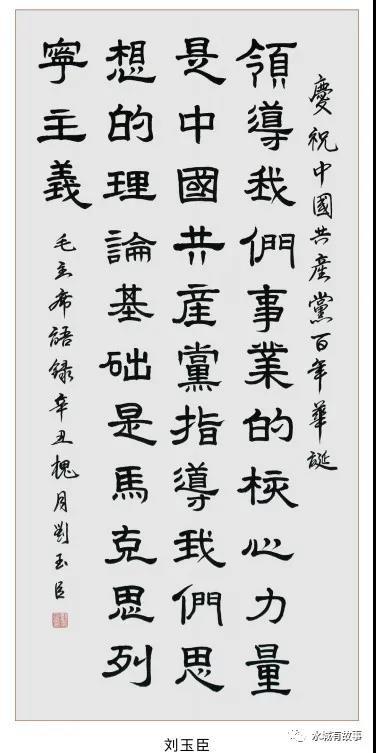 慶祝中國共産黨百年華誕
領導我們事業的核心力量
是中國共産黨指導我們思
想的理論基础是馬克思列
寧主義
毛主席語録辛丑槐月劉玉臣
刘玉臣
永城有故事